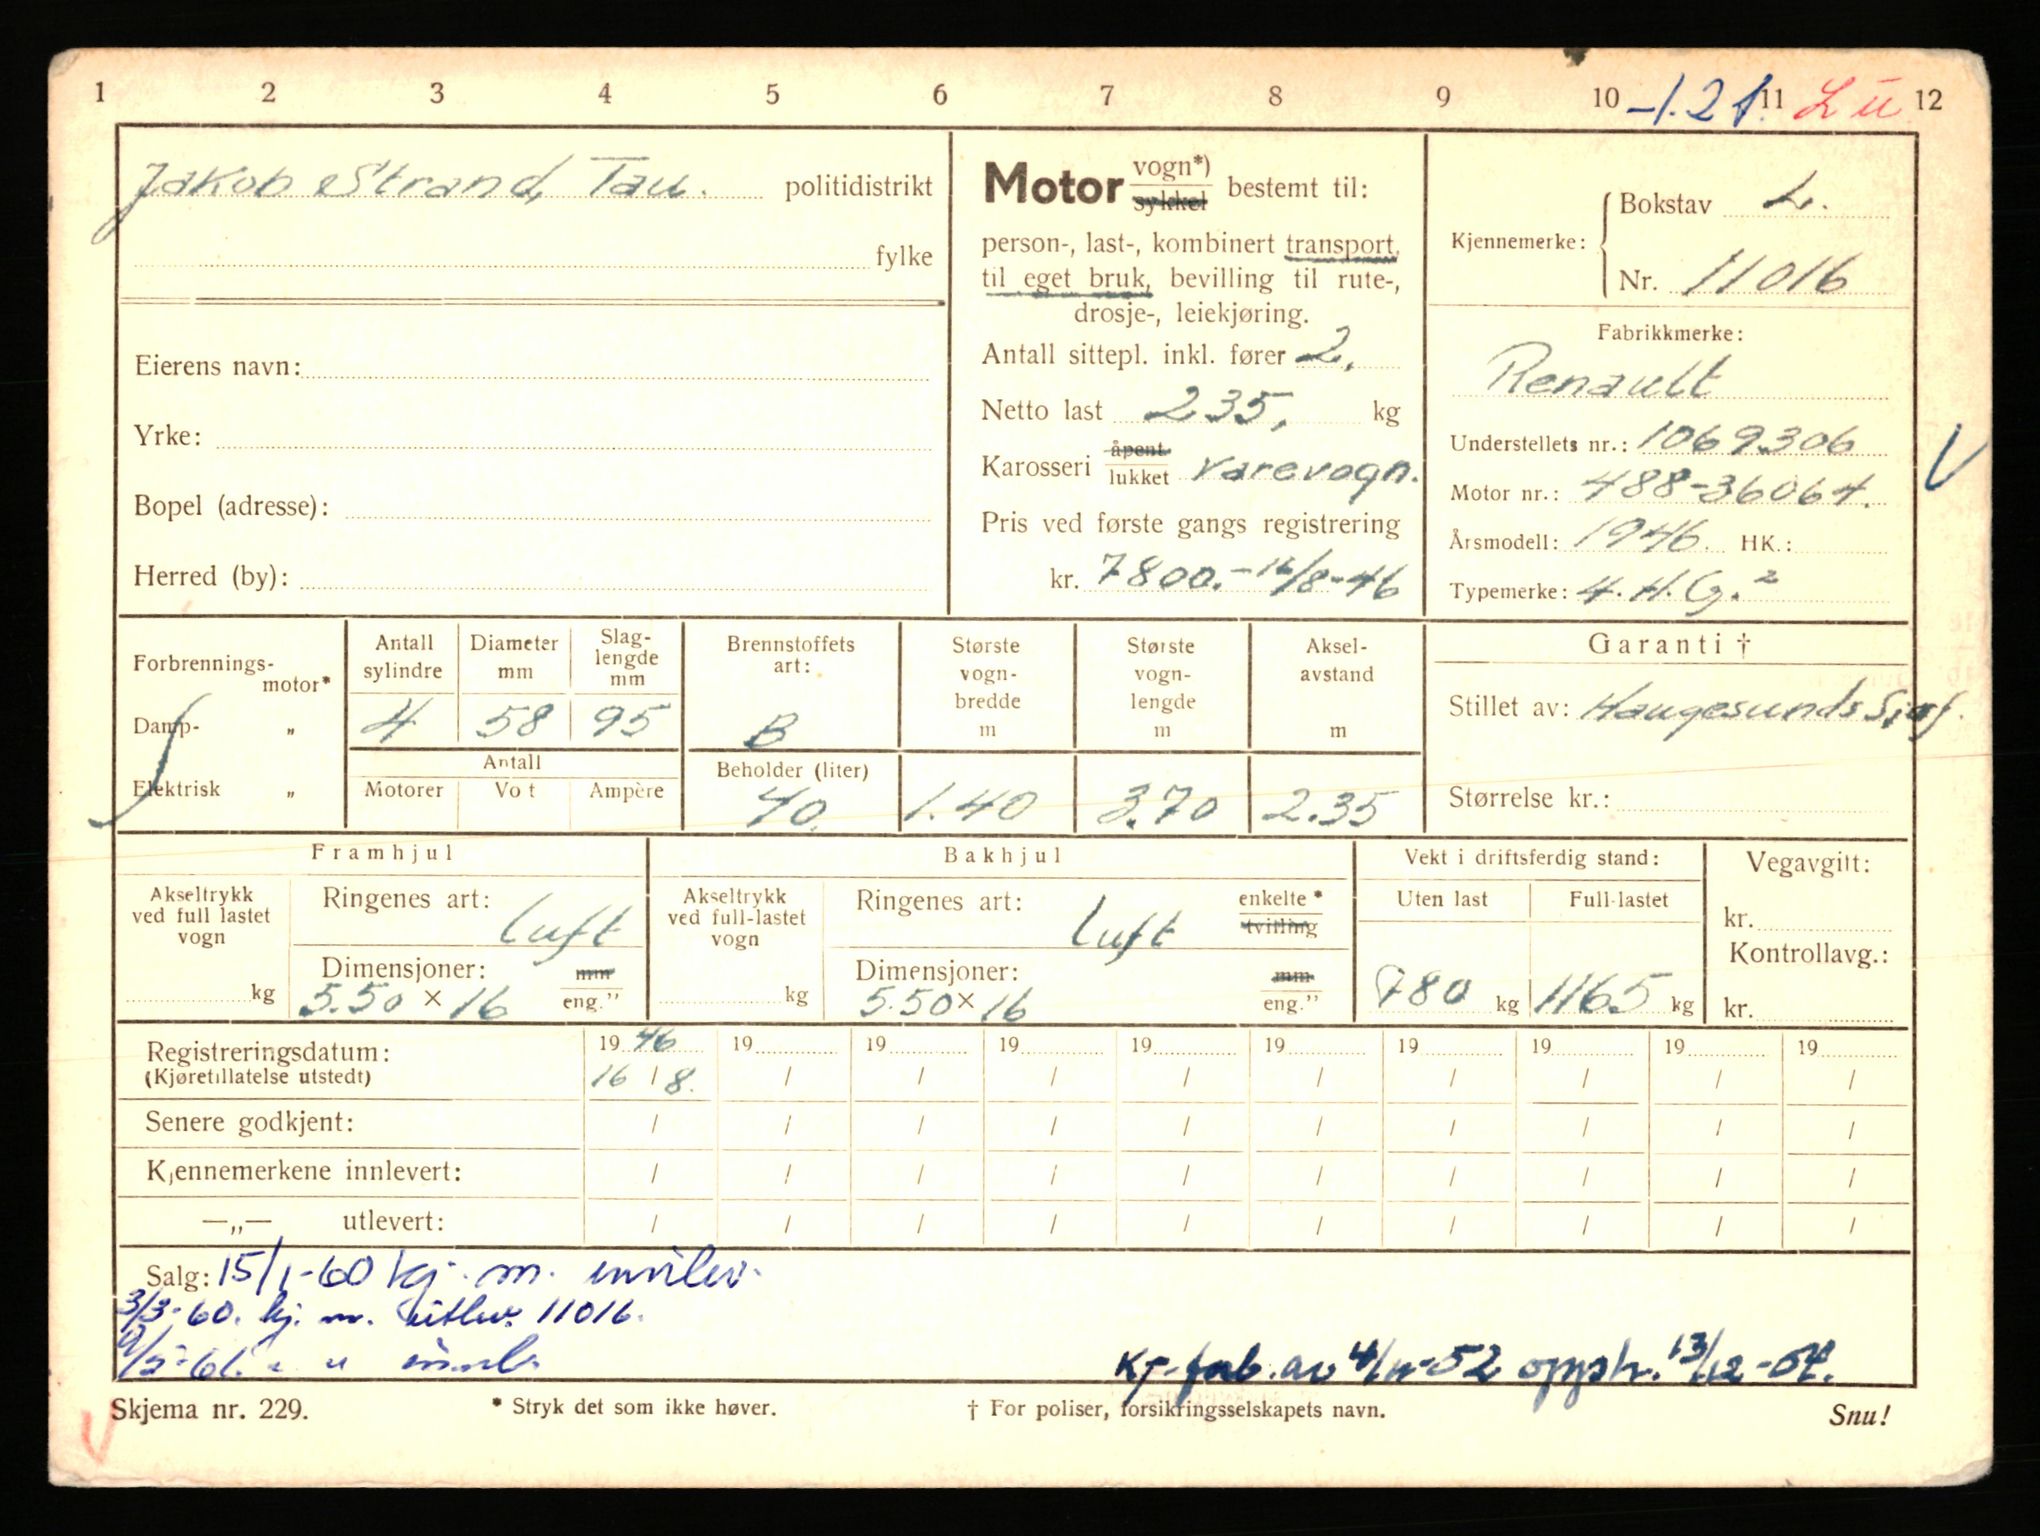 1 2 3 4 5 6 7 8 9 10 -1.21. 11 L ü 12
Jakob Strand, Tau. politidistrikt
fylke
Eierens navn:
Yrke:
Bopel (adresse):
Herred (by):
Motor vogn*) sykkel bestemt til:
person-, last-, kombinert transport,
til eget bruk, bevilling til rute-,
drosje-, leiekjøring.
Antall sittepl. inkl. fører 2,
Netto last 235, kg
Karosseri åpent lukket varevogn.
Pris ved første gangs registrering
kr. 7800.- 16/8-46
Kjennemerke: Bokstav L.
Nr. 11016
Fabrikkmerke:
Renault
Understellets nr.: 1069306
Motor nr.: 488-36064.
Årsmodell: 1946. HK.:
Typemerke: 4.H.G.2
V
Forbrennings-
motor*
Damp- „
Elektrisk „
Antall sylindre 4
Diameter mm 58
Slag-lengde mm 95
Antall
Motorer Vo t Ampère
Brennstoffets art: B
Beholder (liter) 40.
Største vogn-bredde m 1.40
Største vogn-lengde m 3.70
Aksel-avstand m 2.35
Garanti †
Stillet av: Haugesunds Sjøf.
Størrelse kr.:
Framhjul
Akseltrykk ved full lastet vogn kg
Ringenes art: luft
Dimensjoner: mm
5.50 × 16 eng.”
Bakhjul
Akseltrykk ved full-lastet vogn kg
Ringenes art: luft enkelte* tvilling
Dimensjoner: mm
5.50 × 16 eng.”
Vekt i driftsferdig stand:
Uten last Full-lastet
780 kg 1165 kg
Vegavgift:
kr.
Kontrollavg.:
kr.
Registreringsdatum: 19 46 19 19 19 19 19 19 19 19 19
(Kjøretillatelse utstedt) 16 / 8. / / / / / / / / /
Senere godkjent: / / / / / / / / / /
Kjennemerkene innlevert: / / / / / / / / / /
—„— utlevert: / / / / / / / / / /
Salg: 15/1-60 kj. m. innlev.
3/3-60. kj. m. utlev. 11016.
9/5-61. " " innl.
Kj.forb. av 4/11-52 opph. 13/12-54.
Skjema nr. 229. * Stryk det som ikke høver. † For poliser, forsikringsselskapets navn. Snu!
V